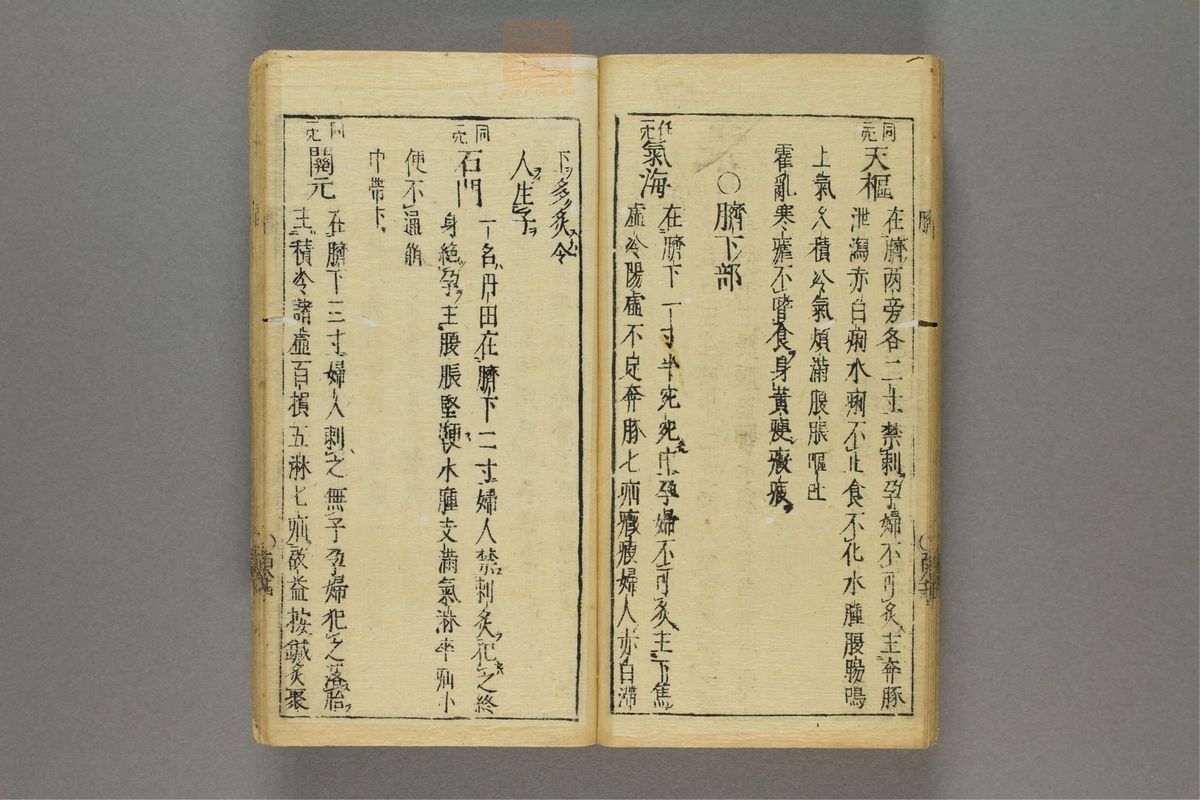 同
穴
天樞
在臍兩旁各二寸禁刺孕婦不可灸主奔豚
泄瀉赤白痢水痢不止食不化水腫腹腸鳴
上氣久積冷氣煩滿腹脹嘔吐
霍亂寒瘧不嗜食身黄
○臍下部
任
穴
氣海
在臍下一寸半宛宛中孕婦不可灸主下焦
虚冷陽虚不足奔豚七疝癥瘕婦人赤白滯
下多灸令
人生子
同
穴
石門
一名丹田在臍下二寸婦人禁刺灸犯之終
身絶孕主腹脹堅鞕水腫支滿氣淋卒疝小
便不通
中帶下
同
穴
關元
在臍下三寸婦人刺之無子孕婦犯之落胎
主積冷諸虚百損五淋七疝故益按鍼灸聚